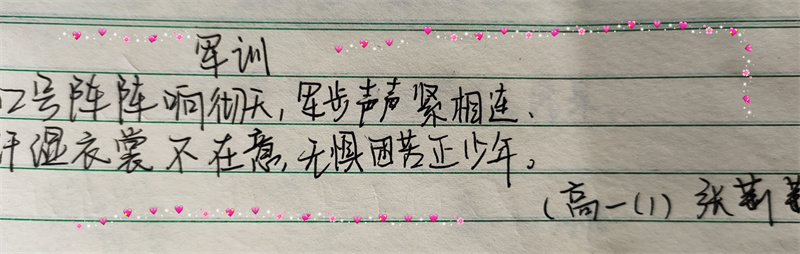 军训
口号阵阵响彻天,军步声声紧相连、
汗湿衣裳不在意,无惧困苦正少年。
(高一(1)) 张莉